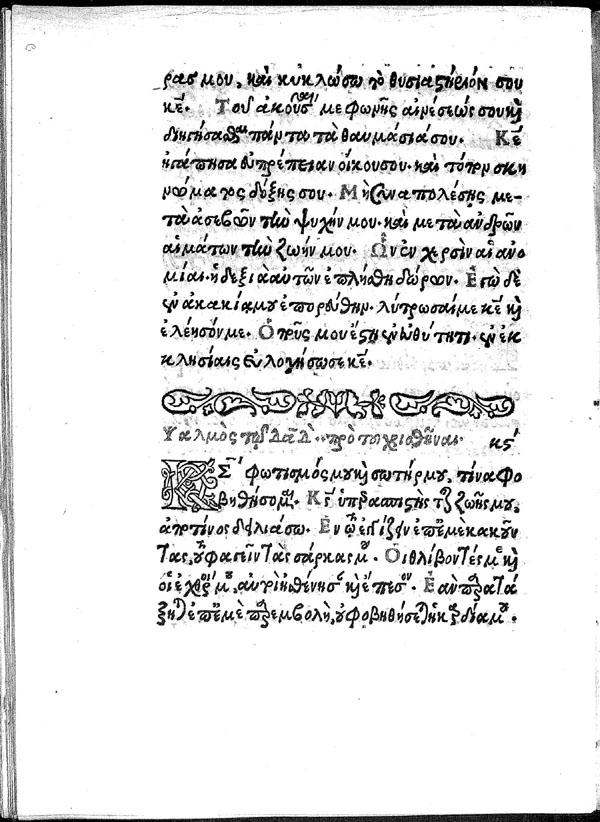 ράς μου, καὶ κυκλώσω τὸ θυσιαστήριόν σου
κε̅. Τοῦ ἀκοῦσαί με φωνῆς αἰνέσεώς σου κ̀
διηγήσασθαι πάντα τὰ θαυμάσιά σου. Κε̅
ἠγάπησα εὐπρέπειαν οἴκου σου. καὶ τόπον σκη
νώματος δόξης σου. Μὴ συναπολέσῃς με-
τὰ ἀσεβῶν τὴν ψυχήν μου. καὶ μετὰ ἀνδρῶν
αἱμάτων τὴν ζωήν μου. Ὧν ἐν χερσὶν αἱ ἀνο
μίαι. ἡ δεξιὰ αὐτῶν ἐπλήσθη δώρων. Ἐγὼ δὲ
ἐν ἀκακίᾳ μου ἐπορεύθην. λύτρωσαί με κε̅ κ̀
ἐλέησόν με. Ὁ πούς μου ἔστη ἐν εὐθύτητι. ἐν ἐκ
κλησίαις εὐλογήσω σε κε̅.
Ψαλμὸς τῷ Δα̅δ̅. πρὸ τοῦ χρισθῆναι. κϛʹ
Κς̅ φωτισμός μου κ̀ σωτήρ μου, τίνα φο
βηθήσομαι. Κς̅ ὑπερασπιστὴς τῆς ζωῆς μου,
ἀπὸ τίνος δειλιάσω. Ἐν τῷ ἐγγίζειν ἐπ' ἐμὲ κακοῦν
τας, τοῦ φαγεῖν τὰς σάρκας μου. Οἱ θλίβοντές με κ̀
οἱ ἐχθροί μου, αὐτοὶ ἠσθένησαν κ̀ ἔπεσον. Ἐὰν παρατά
ξηται ἐπ' ἐμὲ παρεμβολὴ, οὐ φοβηθήσεται ἡ καρδία μου.